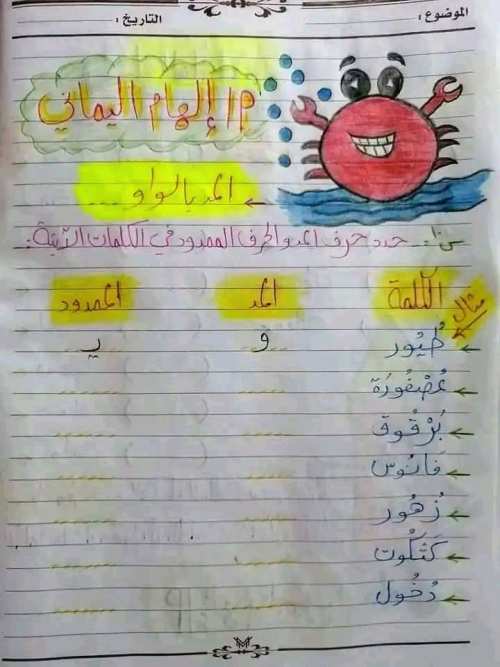 الموضوع: التاريخ:
م/ إلهام اليماني
← المد بالواو ....
س١: حدد حرف المد والحرف الممدود في الكلمات الآتية:
الكلمة المد الممدود
مثال
← طُيُور و يـ
← عُصْفُورَة
← بُرْقُوق
← فَانُوس
← زُهُور
← كَتْكُوت
← دُخُول